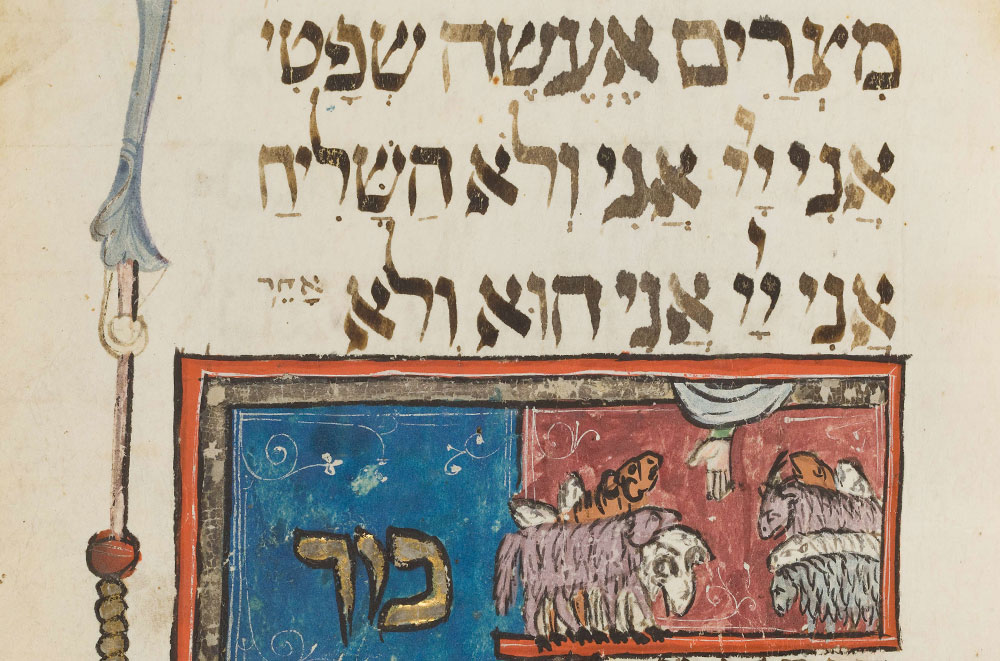 מִצְרַיִם אֶעֱשֶׂה שְׁפָטִי
אֲנִי יְיָ אֲנִי וְלֹא הַשָּׁלִיחַ
אֲנִי יְיָ אֲנִי הוּא וְלֹא אַחֵר
ביד